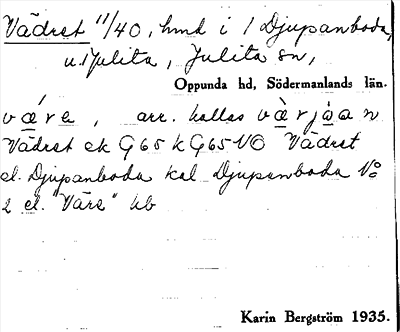 Vädret 11/40, hmd i 1 Djupanboda,
u. Julita, Julita sn,
Oppunda hd, Södermanlands län.
vä́re, arr. kallas vä̀rjan
Vädret ek G65 k G65 NO Vädret
el. Djupanboda kal Djupanboda No
2 el. "Väre" hb
Karin Bergström 1935.